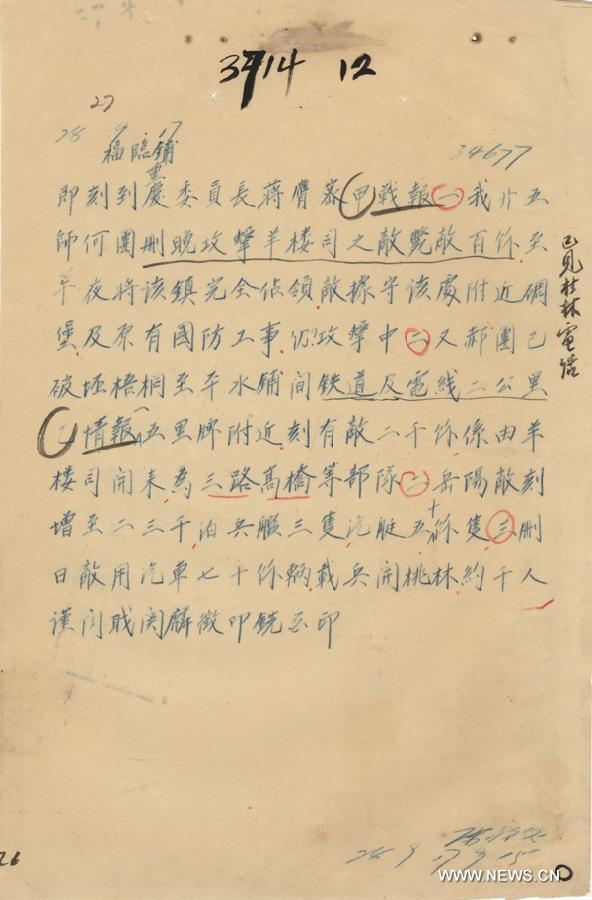 3714 12
27
28 9 17
34677
福臨鋪
即刻到慶委員長蔣膺密甲戰報一我廿五
師何團刪晚攻擊羊楼司之敵斃敵百餘至
午夜將该鎮完全佔領敵據守该處附近碉
堡及原有國防工事仍攻擊中二又郝團已
破坯梧桐至平水鋪間鉄道及電线二公里
情報五里牌附近刻有敵二千餘係由羊
楼司開来為三路高橋等部隊二岳陽敵刻
增至二三千泊兵艦三隻汽艇五十餘隻三刪
日敵用汽車七十餘輛載兵開桃林約千人
謹聞職関麟徵叩銑印
已見杜林電話
28 9 17 9 15
26
WWW.NEWS.CN